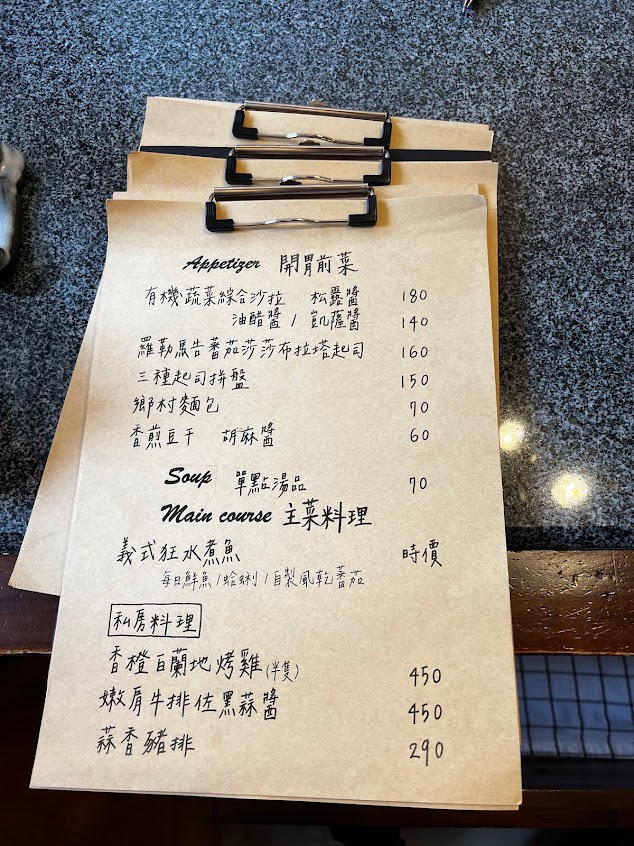 Appetizer 開胃前菜
有機蔬菜綜合沙拉 松露醬 180
油醋醬 / 凱薩醬 140
羅勒馬告蕃茄莎莎布拉塔起司 160
三種起司拼盤 150
鄉村麵包 70
香煎豆干 胡麻醬 60
Soup 單點湯品 70
Main course 主菜料理
義式狂水煮魚 時價
每日鮮魚 / 蛤蜊 / 自製風乾蕃茄
私房料理
香橙白蘭地烤雞(半隻) 450
嫩肩牛排佐黑蒜醬 450
蒜香豬排 290